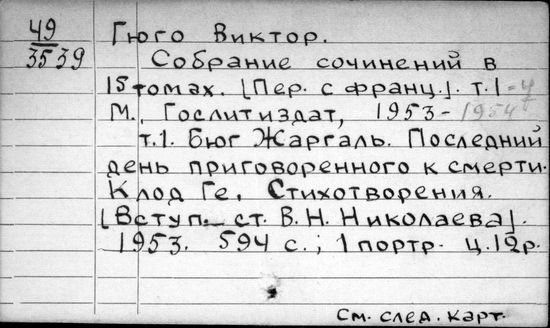 49
3539
Гюго Виктор.
Собрание сочинений в
15 томах. [Пер. с франц.]. т.1-4
М., Гослитиздат, 1953-1954
т.1. Бюг Жаргаль. Последний
день приговоренного к смерти.
Клод Ге. Стихотворения.
[Вступ. ст. В.Н. Николаева].
1953. 594 с.; 1 портр. ц.12р.
См. след. карт.